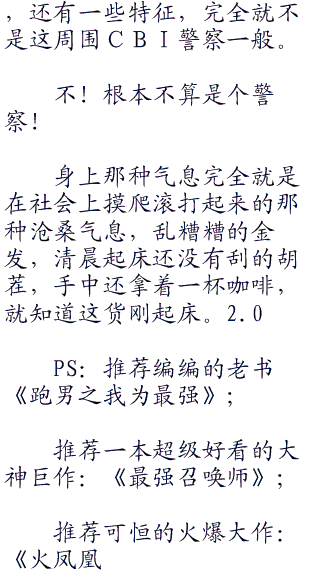 ，还有一些特征，完全就不
是这周围ＣＢＩ警察一般。
不！根本不算是个警
察！
身上那种气息完全就是
在社会上摸爬滚打起来的那
种沧桑气息，乱糟糟的金
发，清晨起床还没有刮的胡
茬，手中还拿着一杯咖啡，
就知道这货刚起床。2.0
PS：推荐编编的老书
《跑男之我为最强》；
推荐一本超级好看的大
神巨作：《最强召唤师》；
推荐可恒的火爆大作：
《火凤凰